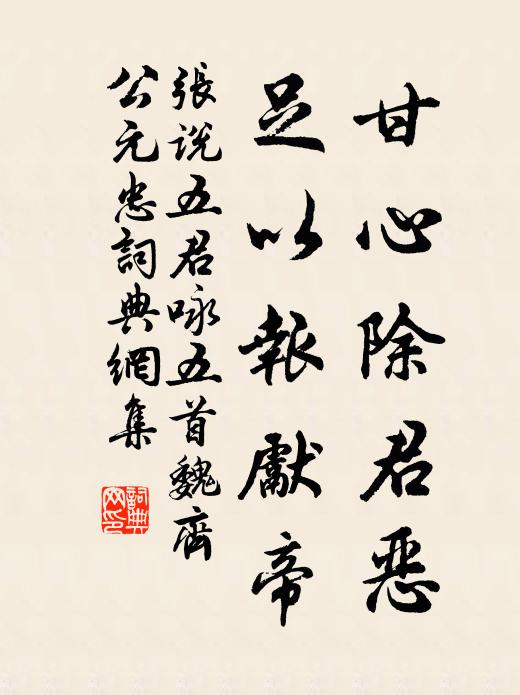 甘心除君惡
足以報獻帝
張說五君咏五首魏齊
公元忠詞典網集
詞典
网印